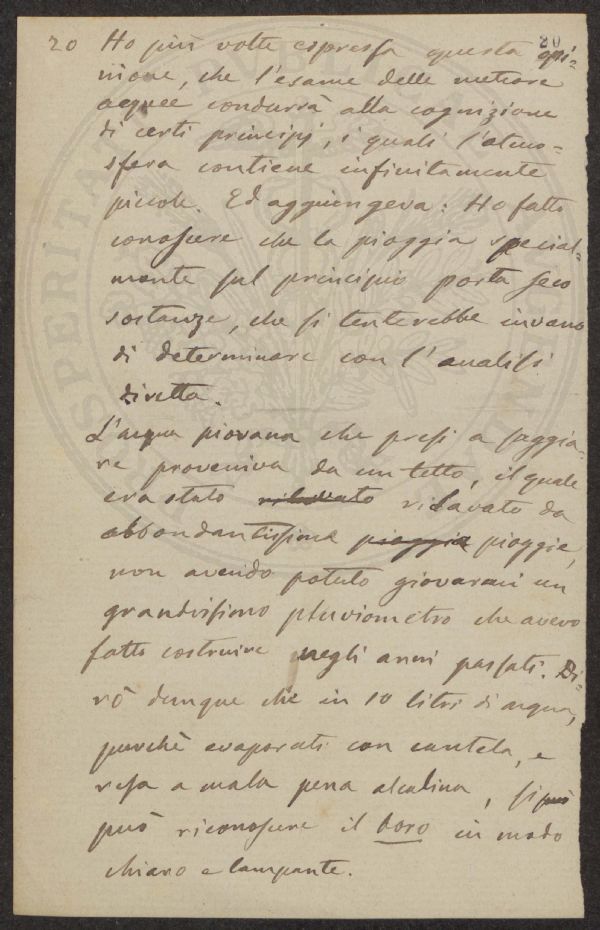 20 Ho più volte espressa questa opi-
80
nione, che l'esame delle meteore
acquee condurrà alla cognizione
di certi principj, i quali l'atmo-
sfera contiene infinitamente
piccole. Ed aggiungeva: Ho fatto
conoscere che la pioggia special-
mente sul principio porta seco
sostanze, che si tenterebbe invano
di determinare con l'analisi
diretta.
L'acqua piovana che presi a saggia-
re proveniva da un tetto, il quale
era stato rilavato da
abbondantissime pioggia pioggie,
non avendo potuto giovarmi un
grandissimo pluviometro che avevo
fatto costruire negli anni passati. Di-
rò dunque che in 10 litri di acqua,
purchè evaporati con cautela, e
resa a mala pena alcalina, si può
può riconoscere il boro in modo
chiaro e lampante.
PROSPERITATI PVBLICAE